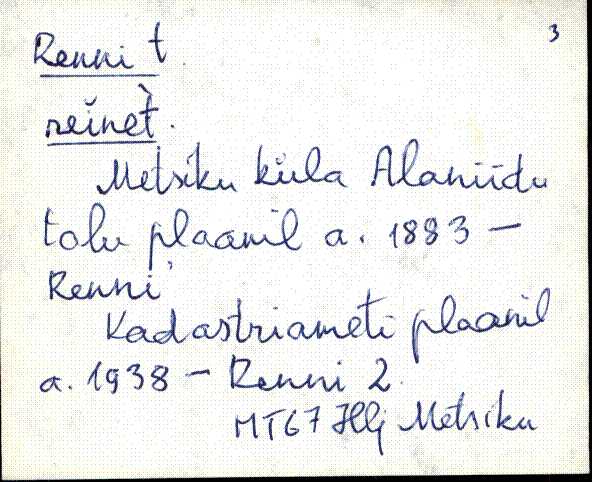 3
Renni t
reinèt.
Metsiku küla Alaniidu
talu plaanil a. 1883 –
Renni
Kadastriameti plaanil
a. 1938 – Renni 2.
MT67 Hlj Metsiku